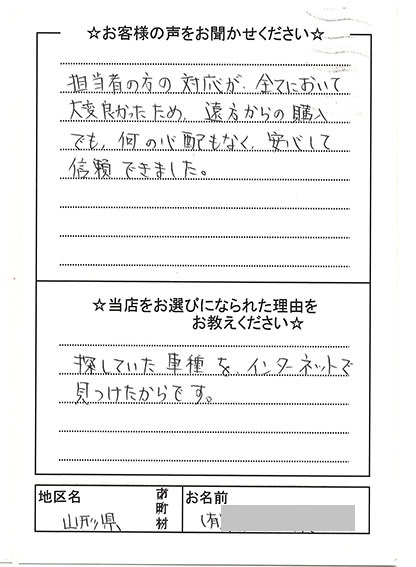 ☆お客様の声をお聞かせください☆
担当者の方の対応が、全てにおいて
大変良かったため、遠方からの購入
でも、何の心配もなく、安心して
信頼できました。
☆当店をお選びになられた理由を
お教えください☆
探していた車種を、インターネットで
見つけたからです。
地区名 市町村 お名前
山形県 (有)